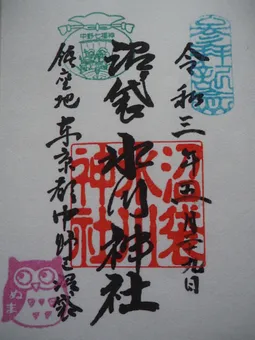 参拝記念
令和三年五月二九日
中野七福神
沼袋氷川神社
沼袋氷川神社
鎮座地東京都中野区沼袋
ぬま